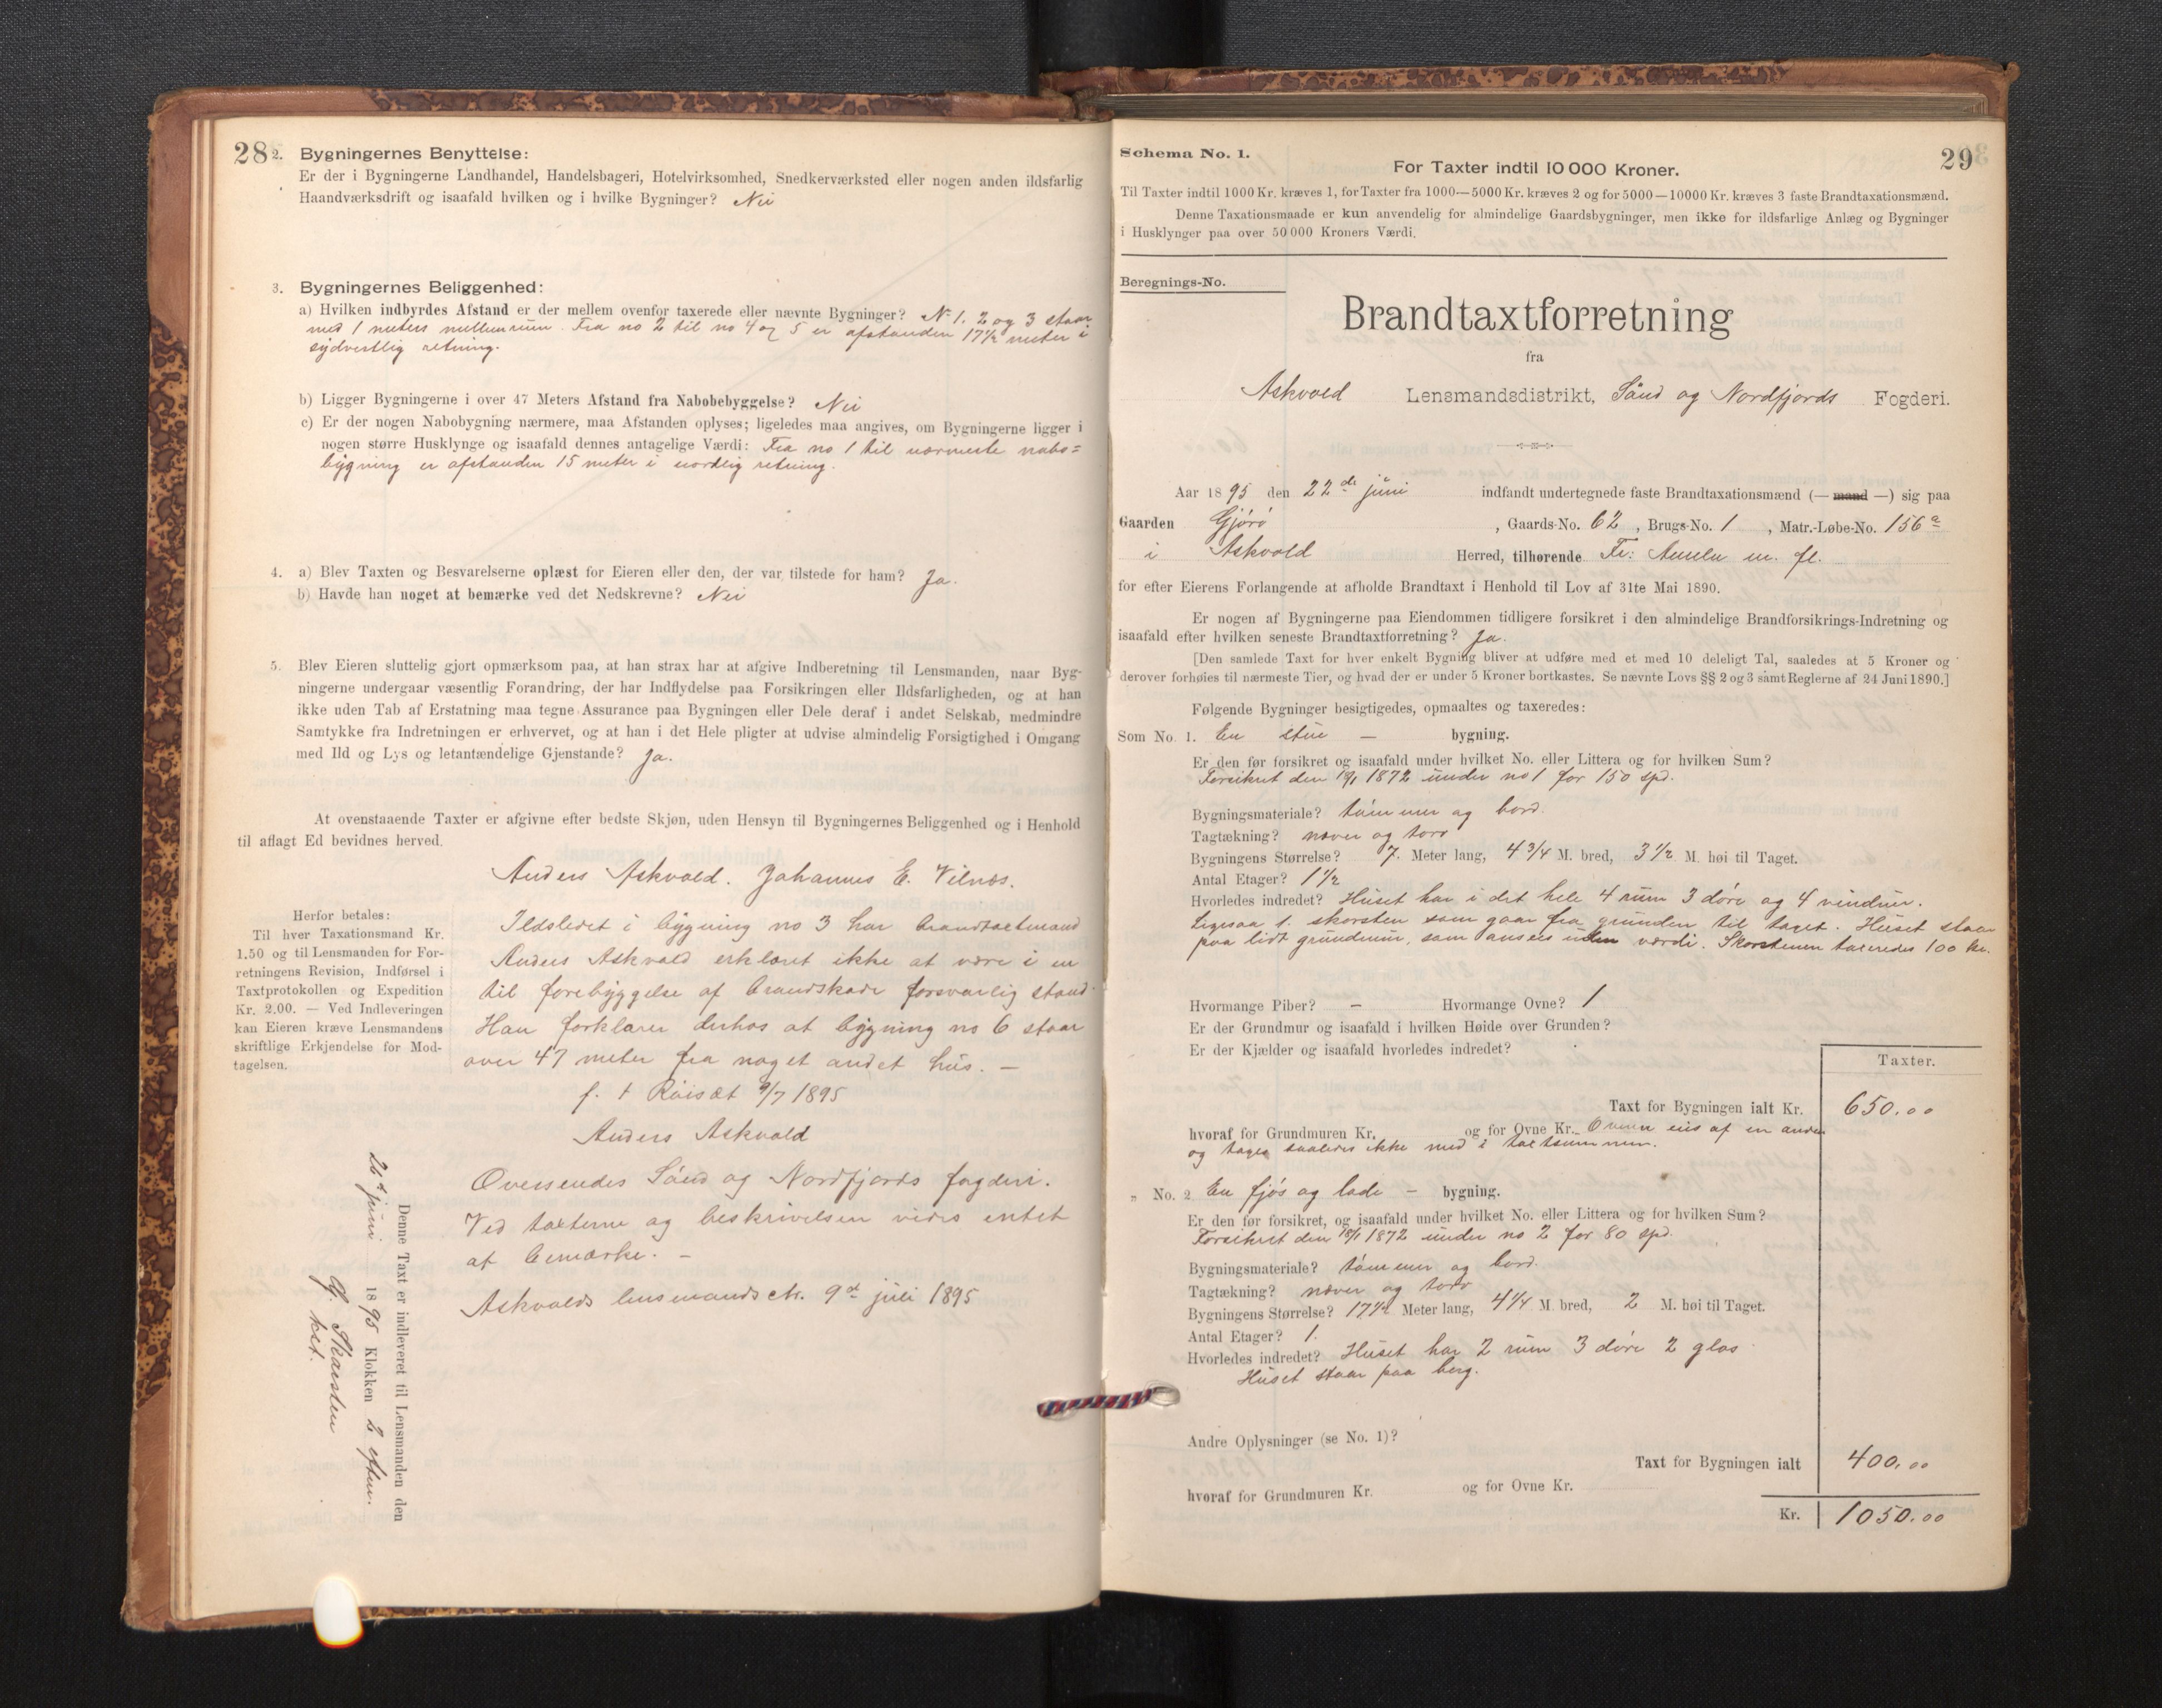 28
2. Bygningernes Benyttelse:
Er der i Bygningerne Landhandel, Handelsbageri, Hotelvirksomhed, Snedkerværksted eller nogen anden ildsfarlig
Haandværksdrift og isaafald hvilken og i hvilke Bygninger? Nei
3. Bygningernes Beliggenhed:
a) Hvilken indbyrdes Afstand er der mellem ovenfor taxerede eller nævnte Bygninger? No 1. 2 og 3 staar
med 1 meters mellemrum. Fra no 2 til no 4 og 5 er afstanden 17½ meter i
sydvestlig retning.
b) Ligger Bygningerne i over 47 Meters Afstand fra Nabobebyggelse? Nei
c) Er der nogen Nabobygning nærmere, maa Afstanden oplyses; ligeledes maa angives, om Bygningerne ligger i
nogen større Husklynge og isaafald dennes antagelige Værdi: Fra no 1 til nærmeste nabo=
bygning er afstanden 15 meter i nordlig retning.
4. a) Blev Taxten og Besvarelserne oplæst for Eieren eller den, der var tilstede for ham? Ja.
b) Havde han noget at bemærke ved det Nedskrevne? Nei
5. Blev Eieren sluttelig gjort opmærksom paa, at han strax har at afgive Indberetning til Lensmanden, naar Byg-
ningerne undergaar væsentlig Forandring, der har Indflydelse paa Forsikringen eller Ildsfarligheden, og at han
ikke uden Tab af Erstatning maa tegne Assurance paa Bygningen eller Dele deraf i andet Selskab, medmindre
Samtykke fra Indretningen er erhvervet, og at han i det Hele pligter at udvise almindelig Forsigtighed i Omgang
med Ild og Lys og letantændelige Gjenstande? Ja.
At ovenstaaende Taxter er afgivne efter bedste Skjøn, uden Hensyn til Bygningernes Beliggenhed og i Henhold
til aflagt Ed bevidnes herved.
Anders Askvold. Johannes E. Vilnæs.
Herfor betales:
Til hver Taxationsmand Kr.
1.50 og til Lensmanden for For-
retningens Revision, Indførsel i
Taxtprotokollen og Expedition
Kr. 2.00. — Ved Indleveringen
kan Eieren kræve Lensmandens
skriftlige Erkjendelse for Mod-
tagelsen.
Ildstedet i bygning no 3 har brandtaxtmand
Anders Askvold erklæret ikke at være i en
til forebyggelse af brandskade forsvarlig stand.
Han forklarer derhos at bygning no 6 staar
over 47 meter fra noget andet hus. —
f. t 9/7 1895
Anders Askvold
Oversendes Sønd og Nordfjords fogderi.
Ved taxterne og beskrivelsen vides intet
at bemærke. —
Askvolds lensmandsctr. 9de juli 1895
Denne Taxt er indleveret til Lensmanden den
26de juni 1895 Klokken 2 efterm.
Skarsten
kst.
29
Schema No. 1.
For Taxter indtil 10 000 Kroner.
Til Taxter indtil 1000 Kr. kræves 1, for Taxter fra 1000—5000 Kr. kræves 2 og for 5000—10000 Kr. kræves 3 faste Brandtaxationsmænd.
Denne Taxationsmaade er kun anvendelig for almindelige Gaardsbygninger, men ikke for ildsfarlige Anlæg og Bygninger
i Husklynger paa over 50 000 Kroners Værdi.
Beregnings-No.
Brandtaxtforretning
fra
Askvold Lensmandsdistrikt, Sönd og Nordfjords Fogderi.
Aar 1895 den 22de juni indfandt undertegnede faste Brandtaxationsmænd (— mand —) sig paa
Gaarden Gjörö, Gaards-No. 62, Brugs-No. 1, Matr.-Løbe-No. 156a
i Askvold Herred, tilhørende Fr: m. fl.
for efter Eierens Forlangende at afholde Brandtaxt i Henhold til Lov af 31te Mai 1890.
Er nogen af Bygningerne paa Eiendommen tidligere forsikret i den almindelige Brandforsikrings-Indretning og
isaafald efter hvilken seneste Brandtaxtforretning? Ja.
[Den samlede Taxt for hver enkelt Bygning bliver at udføre med et med 10 deleligt Tal, saaledes at 5 Kroner og
derover forhøies til nærmeste Tier, og hvad der er under 5 Kroner bortkastes. Se nævnte Lovs §§ 2 og 3 samt Reglerne af 24 Juni 1890.]
Følgende Bygninger besigtigedes, opmaaltes og taxeredes:
Som No. 1. En stue — bygning.
Er den før forsikret og isaafald under hvilket No. eller Littera og for hvilken Sum?
Forsikret den 18/1 1872 under no 1 for 150 spd.
Bygningsmateriale? tömmer og bord.
Tagtækning? næver og torv
Bygningens Størrelse? 7. Meter lang, 4¾ M. bred, 3½ M. høi til Taget.
Antal Etager? 1½
Hvorledes indredet? Huset har i det hele 4 rum 3 döre og 4 vinduer.
Ligesaa 1. skorsten som gaar fra grunden til taget. Huset staar
paa lidt grundmur, som ansees uden værdi. Skorstenen taxeredes 100 kr.
Hvormange Piber? — Hvormange Ovne? 1
Er der Grundmur og isaafald i hvilken Høide over Grunden?
Er der Kjælder og isaafald hvorledes indredet?
Taxter.
Taxt for Bygningen ialt Kr. 650.00
hvoraf for Grundmuren Kr. og for Ovne Kr. Ovnen eies af en anden
og tages saaledes ikke med i taxtsummen.
„ No. 2 En fjös og lade — bygning.
Er den før forsikret, og isaafald under hvilket No. eller Littera og for hvilken Sum?
Forsikret den 18/1 1872 under no 2 for 80 spd.
Bygningsmateriale? tömmer og bord.
Tagtækning? næver og torv
Bygningens Størrelse? 17½ Meter lang, 4¼ M. bred, 2 M. høi til Taget.
Antal Etager? 1.
Hvorledes indredet? Huset har 2 rum 3 döre 2 glas
Huset staar paa berg.
Andre Oplysninger (se No. 1)?
Taxt for Bygningen ialt 400.00
hvoraf for Grundmuren Kr. og for Ovne Kr.
Kr. 1050.00